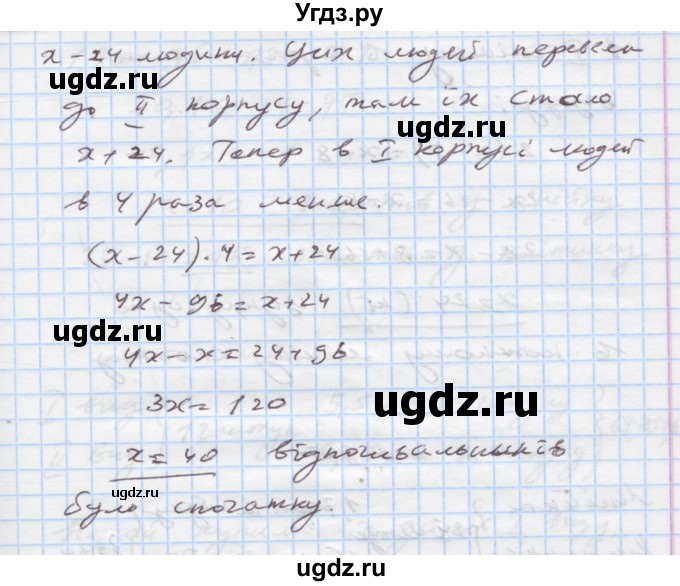 Угдз.ру
x-24 людини. Цих людей перевели
до II корпусу, там їх стало
x+24. Тепер в I корпусі людей
в 4 раза менше.
(x-24)·4=x+24
4x-96=x+24
4x-x=24+96
3x=120
x=40 відпочивальників
було спочатку.
ugdz.ru
ugdz.ru
ugdz.ru
ugdz.ru
ugdz.ru
ugdz.ru
ugdz.ru
ugdz.ru
©ugdz.ru